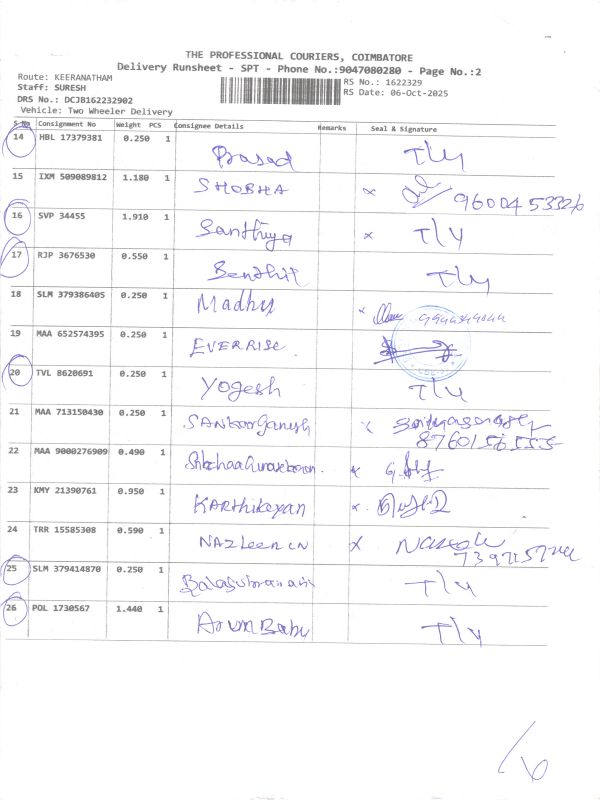 THE PROFESSIONAL COURIERS, COIMBATORE
Delivery Runsheet - SPT - Phone No.:9047080280 - Page No.:2
Route: KEERANATHAM
RS No.: 1622329
Staff: SURESH
RS Date: 06-Oct-2025
DRS No.: DCJB162232902
Vehicle: Two Wheeler Delivery
S No Consignment No Weight PCS Consignee Details Remarks Seal & Signature
14 HBL 17379381 0.250 1 Prasad T/y
15 IXM 509089812 1.180 1 SHOBHA x
16 SVP 34455 1.910 1 Santhiya x T/y
17 RJP 3676530 0.550 1 Senthil T/y
18 SLM 379386405 0.250 1 Madhu x
19 MAA 652574395 0.250 1 EVERRISE
20 TVL 8620691 0.250 1 Yogesh T/y
21 MAA 713150430 0.250 1 x
22 MAA 9000276909 0.490 1 x
23 KMY 21390761 0.950 1 KARthikeyan x
24 TRR 15585308 0.590 1 NAZLeen x
25 SLM 379414870 0.250 1 T/y
26 POL 1730567 1.440 1 Arun Babu T/y